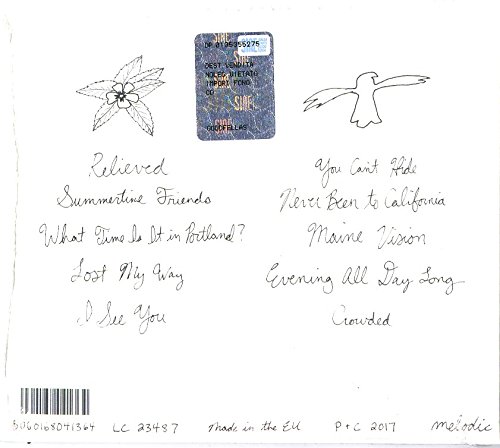 DP 0195355275
DEST. VENDITA
NOLEG. VIETATO
IMPORT FONO
CD
GOODFELLAS
SIAE
Relieved
Summertime Friends
What Time Is It in Portland?
Lost My Way
I See You
You Can't Hide
Never Been to California
Maine Vision
Evening All Day Long
Crowded
5060168041364
LC 23487
Made in the EU
P + C 2017
melodic